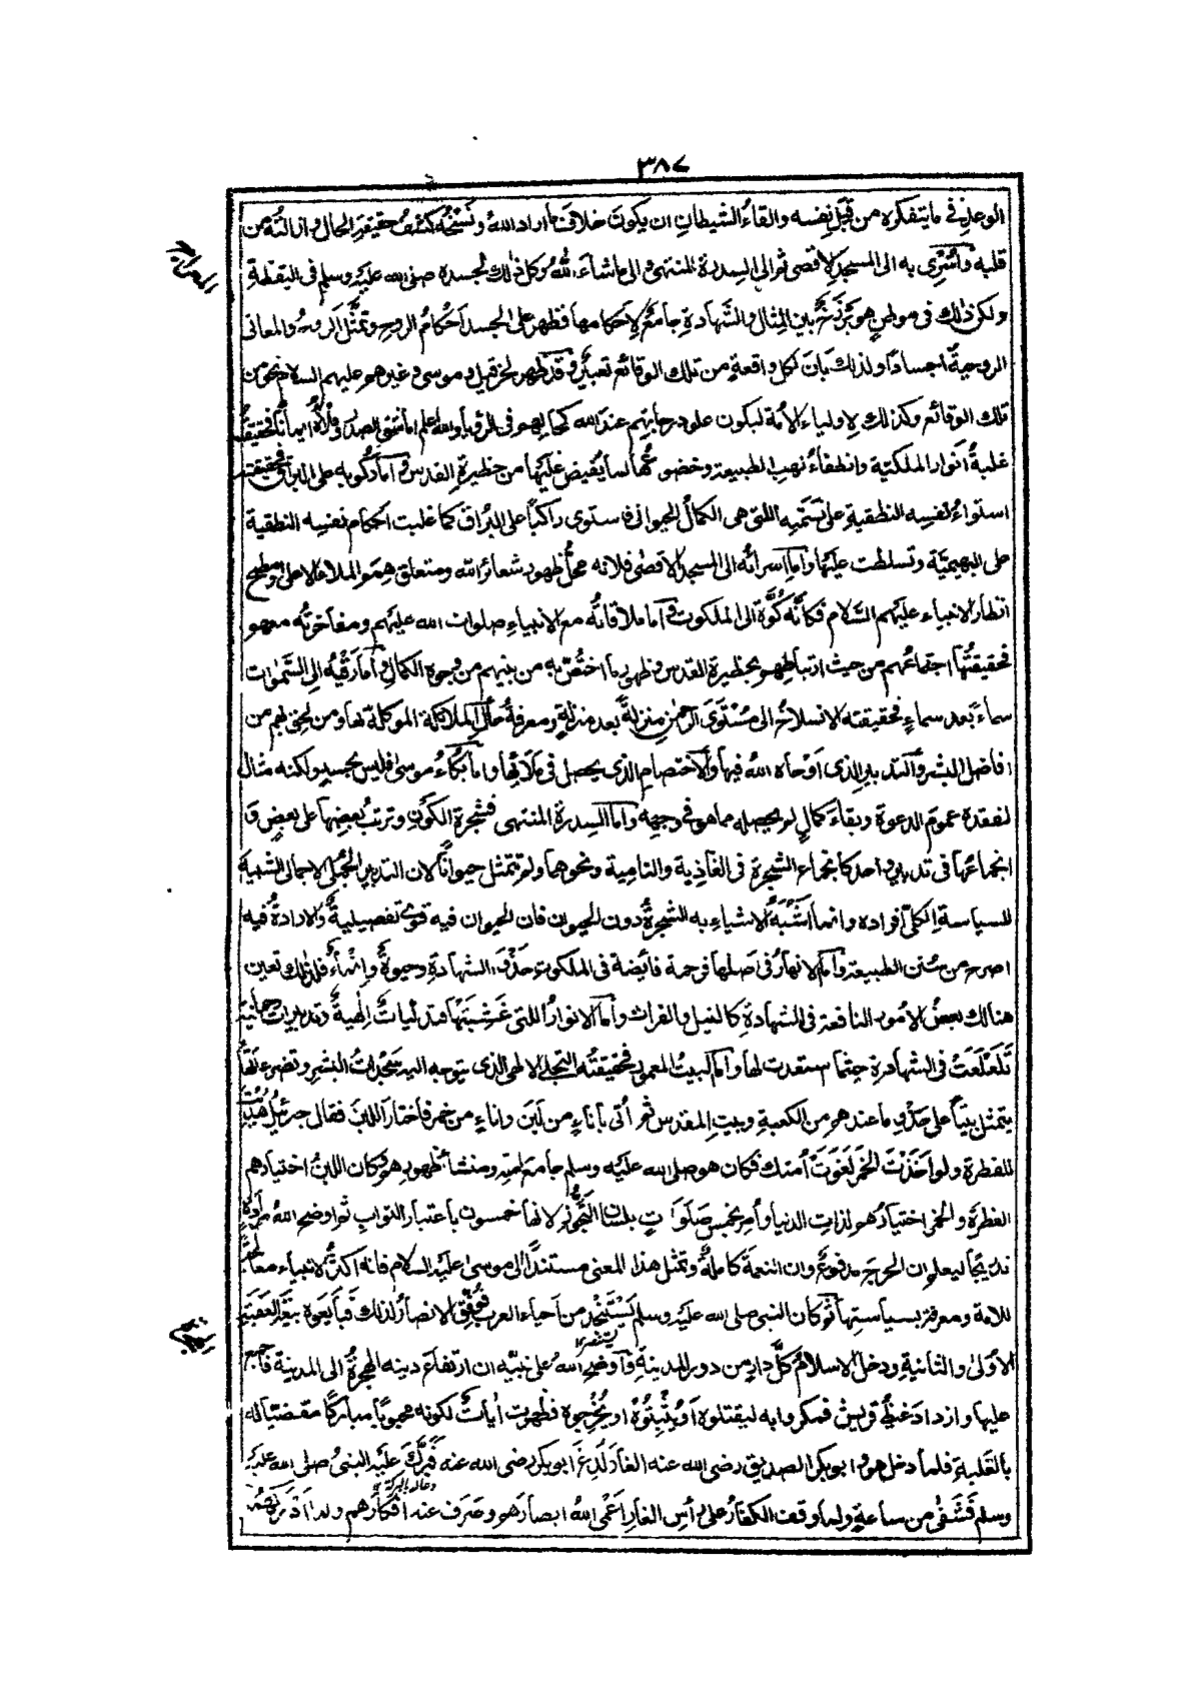 ٣٨٧
الوعد في ما يتفكره من قبل نفسه والقاءُ الشيطانِ ان يكونَ خلافَ ما اراد اللهُ ونَسْخُه كشفُ حقيقةِ الحال وازالتُه من
قلبه وأُسْرِيَ به الى المسجدِ الاقصى ثم الى السِدرةِ المنتهى والى ما شاءَ اللهُ وكل ذٰلك لجسده صلى الله عليه وسلم في اليقظة
المعراج
ولكن ذٰلك في موطنٍ هو بَرْزَخٌ بين المِثال والشَّهادةِ جامعٌ لاحكامهما فظهر على الجسد احكامُ الروح وتمثَّل الروحُ والمعانى
الروحيةُ اجسادًا ولذلك بَانَ لكل واقعةٍ من تلك الوقائع تعبيرٌ وقد ظهر لحزقيل وموسى وغيرهم عليهم السلام نحوٌ من
تلك الوقائع وكذلك لاولياء الأمة ليكون علو درجاتهم عند الله كحالهم في الرؤيا والله اعلم اما شق الصدر وملأُه ايمانًا فحقيقتُه
غلبةُ انوار الملكية وانطفاءُ لهب الطبيعة وخضوعُها لما يُفيض عليها من حظيرةِ القدس واما ركوبه على البراق فحقيقته
استواءُ نفسِه النطقيةِ على نَسَمَتِه التى هى الكمالُ الحيوانى فاستوى راكبًا على البُراق كما غلبت احكام نفسِه النطقية
على البهيميّة وتسلطت عليها واما اسراءُه الى المسجد الاقصى فلانه محلُّ ظهورِ شعائر الله ومتعلق هِمَمِ الملا الاعلى ومطمح
انظار الانبياء عليهم السّلام فكأنّه كُوَّةٌ الى الملكوت واما ملاقاتُه مع الانبياءِ صلوات الله عليهم ومفاخرتُه معهم
فحقيقتُها اجتماعُهم من حيث ارتباطِهم بحظيرةِ القدس وظهورِ ما اختُصّ به من بينهم من وجوه الكمال واما رُقيُّه الى السَّمٰوات
سماءً بعد سماءٍ فحقيقته الانسلاخُ الى مُسْتَوَى الرحمٰن منزلةً بعد منزلةٍ ومعرفةُ حالِ الملائكة الموكلة بها ومن لحق بهم من
افاضل البشر والتدبيرِ الذى اوحاه اللهُ فيها والاختصامِ الذى يحصل فى مَلَأِها واما بكاءُ موسى فليس بحسدٍ ولكنه مثال
لفقده عمومَ الدعوة وبقاءَ كمالٍ لم يحصله مما هو فى وجهه واما السِدرةُ المنتهى فشجرةُ الكَوْنِ وترتبُ بعضِها على بعضٍ و
انجماعُها فى تدبيرٍ واحد كانجماع الشجرةِ فى الغاذية والنامية ونحوهما ولم تتمثل حيوانًا لان التدبير الجُملى الاجمالى الشبيه
للسياسةِ الكلىّ افراده وانما اشبَهُ الاشياءِ به الشجرةُ دون الحيوان فان الحيوان فيه قوىً تفصيليةٌ والارادةُ فيه
اصرح من سُنن الطبيعة واما الانهارُ فى اصلها فرحمة فايضة فى الملكوت حَذْوَ الشهادةِ وحيوةٌ وإنماءٌ فلذٰلك تعين
هنالك بعضُ الامور النافعة فى الشهادةِ كالنيل والفرات واما الانوارُ اللتى غَشِيَتْها فتدلياتٌ إلٰهيةٌ وتدبيراتٌ رحمانية
تَلَعْلَعَتْ فى الشهادةِ حيثما استعدت لها واما البيتُ المعمور فحقيقتُه التجلى الالهى الذى يتوجه اليه سَجَداتُ البشرِ وتضرعاتها
يتمثل بيتًا على حَذْوِ ما عندهم من الكعبةِ وبيتِ المقدس ثم أُتى بأناءٍ من لَبَن واناءٍ من خمر فاختار اللبنَ فقال جبرئيلُ هُدِيتَ
للفطرة ولو اخَذْتَ الخمرَ لغَوَتْ أمتك فكان هو صلى الله عليه وسلم جامعَ امته ومنشأَ ظهورهم وكان اللبنُ اختيارهم
الفطرةَ والخمرُ اختيارُهم لذاتِ الدنيا وأُمِر بخمس صَلَوَاتٍ بلسان التجوُّز لانها خمسون باعتبار الثواب ثم اوضح اللهُ مرادَه
تدريجًا ليعلم ان الحرجَ مدفوعٌ وان النعمة كاملةٌ وتمثل هذا المعنى مستندًا الى موسى عليه السلام فانه اكثرُ الانبياء معالجةً
للامة ومعرفةً بسياستِها ثم كان النبى صلى الله عليه وسلم يَسْتَنْجِد من أحياء العرب فوُفِّق الانصارُ لذلك فبايعوه بيعةَ العقبةِ
يستنصر
الأولىٰ والثانيةِ ودخل الاسلامُ كلَّ دارٍ من دور المدينةِ واوضح اللهُ على نبيّه ان ارتفاعَ دينه الهجرةُ الى المدينة فأجمع
عليها وازداد غيظُ قريش فمكروا به ليقتلوه او يُثْبِتُوْهُ او يُخْرِجوه فظهرت اٰياتٌ لكونه محبوبًا مباركًا مقضيًا له
بالغلبةِ فلما دخل هو وابو بكر الصديق رضى الله عنه الغارَ لُدِغَ ابو بكر رضى الله عنه فبَرَّكَ عليه النبىُ صلى الله عليه
دعا له بالبركة
وسلم فشُفى من ساعةٍ ولما وقف الكفارُ على رأسِ الغارِ اَعْمَى اللهُ ابصارَهم وصَرَف عنه افكارَهم ولما